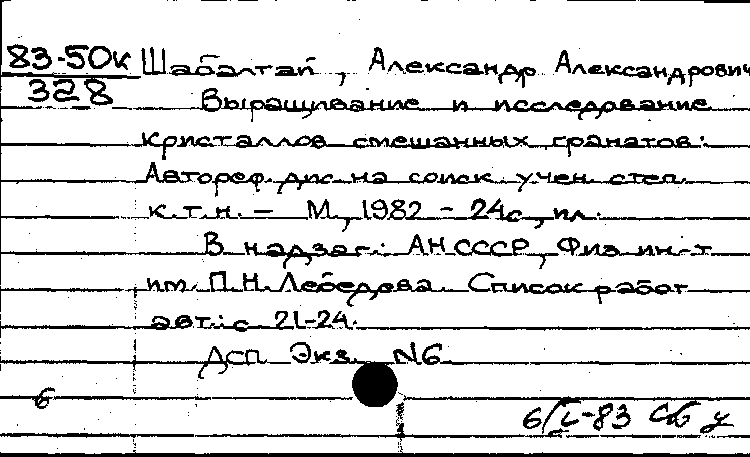 83-50к Шабалтай, Александр Александрович
328 Выращивание и исследование
кристаллов смешанных гранатов:
Автореф. дис. на соиск. учен. степ.
к.т.н. - М., 1982 - 24с., ил.
В надзаг.: АН СССР, Физ. ин-т
им. П.Н. Лебедева. Список работ
авт.: с. 21-24.
ДСП Экз. N6.
6